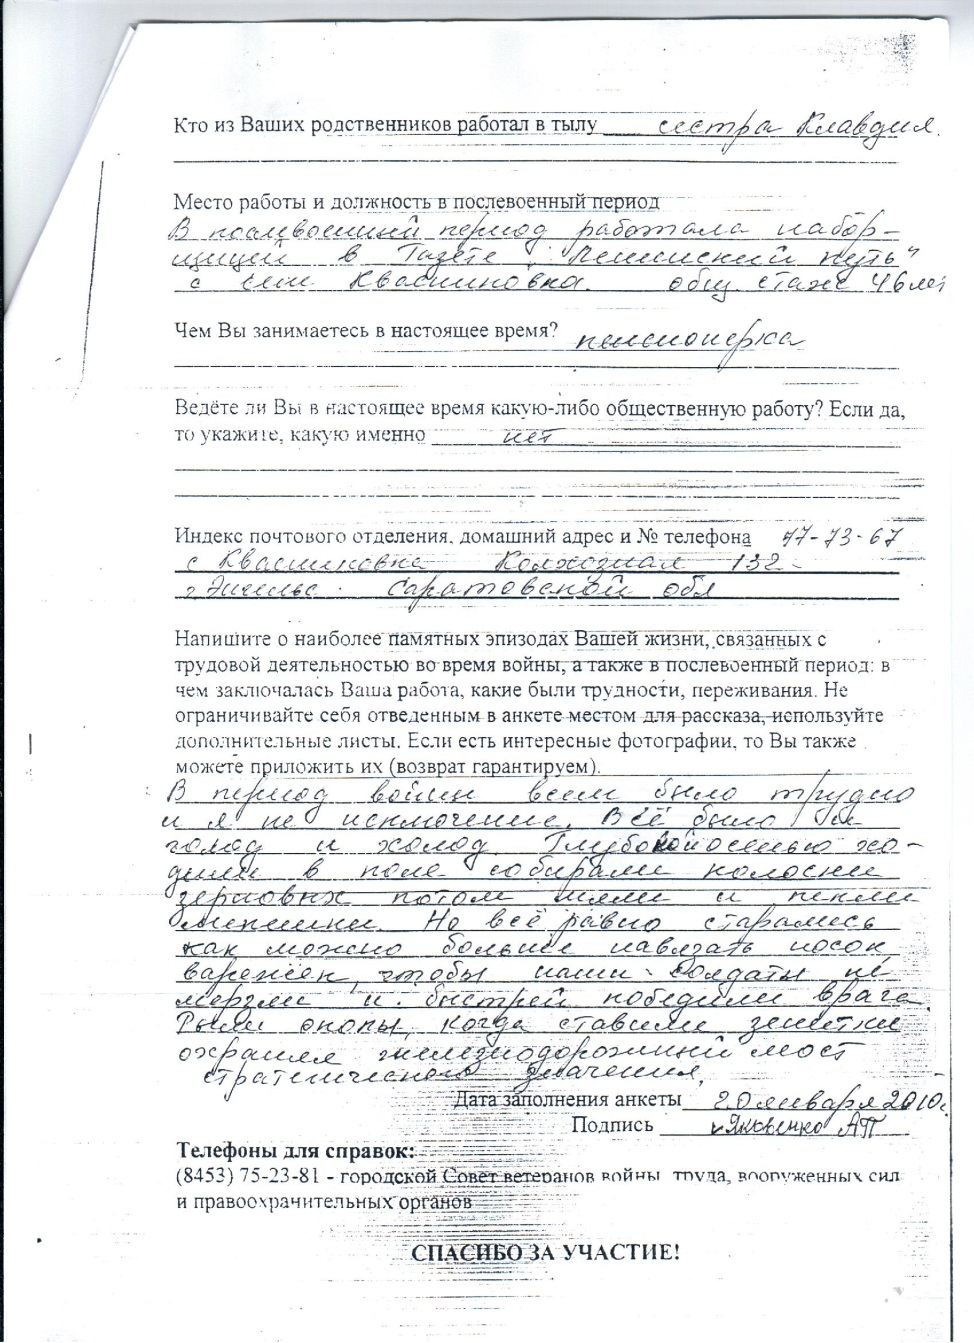 Кто из Ваших родственников работал в тылу сестра Клавдия.
Место работы и должность в послевоенный период
В послевоенный период работала набор-
щицей в Газете „Ленинский путь"
с села Квасниковка. общ. стаж 46 лет
Чем Вы занимаетесь в настоящее время? пенсионерка
Ведёте ли Вы в настоящее время какую-либо общественную работу? Если да,
то укажите, какую именно нет
Индекс почтового отделения, домашний адрес и № телефона 77-73-67
с Квасниковка Колхозная 132
г. Энгельс. Саратовской обл
Напишите о наиболее памятных эпизодах Вашей жизни, связанных с
трудовой деятельностью во время войны, а также в послевоенный период: в
чем заключалась Ваша работа, какие были трудности, переживания. Не
ограничивайте себя отведенным в анкете местом для рассказа, используйте
дополнительные листы. Если есть интересные фотографии, то Вы также
можете приложить их (возврат гарантируем).
В период войны всем было трудно
и я не исключение. Всё было и
голод и холод. Глубокой осенью хо-
дили в поле собирали колоски
зерновых потом мяли и пекли
лепешки. Но всё равно старались
как можно больше навязать носок
варежек, чтобы наши солдаты не
мерзли и быстрей победили врага.
Рыли окопы, когда ставили зенитки
охраняя железнодорожный мост
стратегического значения,
Дата заполнения анкеты 20 января 2010г.
Подпись Яковенко АП
Телефоны для справок:
(8453) 75-23-81 - городской Совет ветеранов войны, труда, вооруженных сил
и правоохранительных органов
СПАСИБО ЗА УЧАСТИЕ!